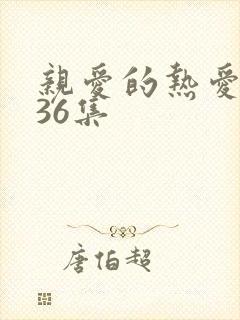 親愛的熱愛
36集
唐伯超